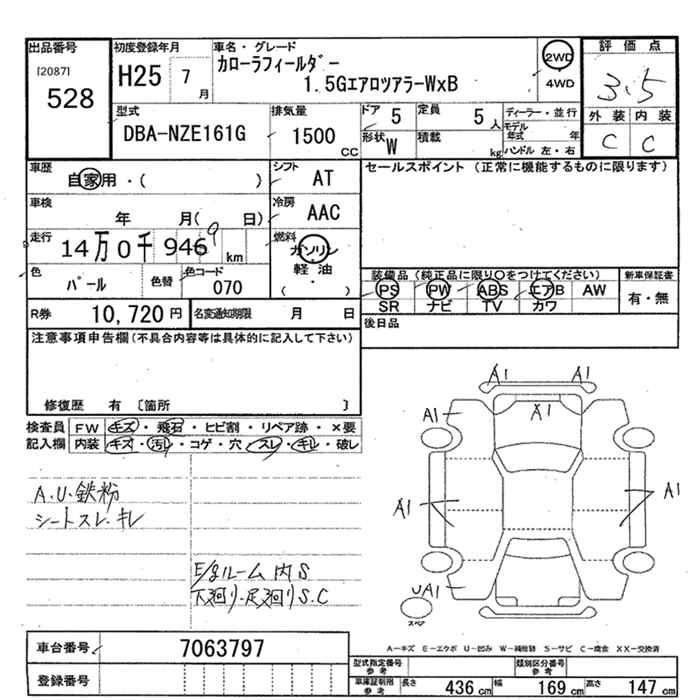 出品番号 初度登録年月 車名・グレード 評価点
[2087] H25 7月 カローラフィールダー 2WD 3.5
528 1.5GエアロツアラーWxB 4WD
型式 排気量 ドア 5 定員 5人 ディーラー・並行 外装 内装
DBA-NZE161G 1500CC 形状 W 積載 kg モデル年式 年 C C
ハンドル 左・右
車歴 シフト セールスポイント (正常に機能するものに限ります)
自家用・( ) AT
車検 冷房
年 月( 日) AAC
走行 燃料
14万0千946km 9 ガソリン
色 色替 色コード 軽油
パール 070 ( ・ )
装備品 (純正品に限り○をつけてください) 新車保証書
PS PW ABS エアB AW 有・無
SR ナビ TV カワ
R券 10,720円 名変通知期限 月 日 後日品
注意事項申告欄(不具合内容等は具体的に記入して下さい)
修復歴 有 〔箇所 〕
検査員 FW キズ・飛石・ヒビ割・リペア跡・×要
記入欄 内装 キズ・汚れ・コゲ・穴・スレ・キレ・破レ
A.U.鉄粉
シートスレ.キレ
E/gルーム内S
下廻り・足廻りS.C
A1 A1
A1 A1
A1 A1
UA1
スペア
A-キズ E-エクボ U-凹み W-補修跡 S-サビ C-腐食 XX-交換済
車台番号 7063797
登録番号
型式指定番号 参考 類別区分番号 参考
車庫証明用 参考 長さ 436cm 幅 169cm 高さ 147cm